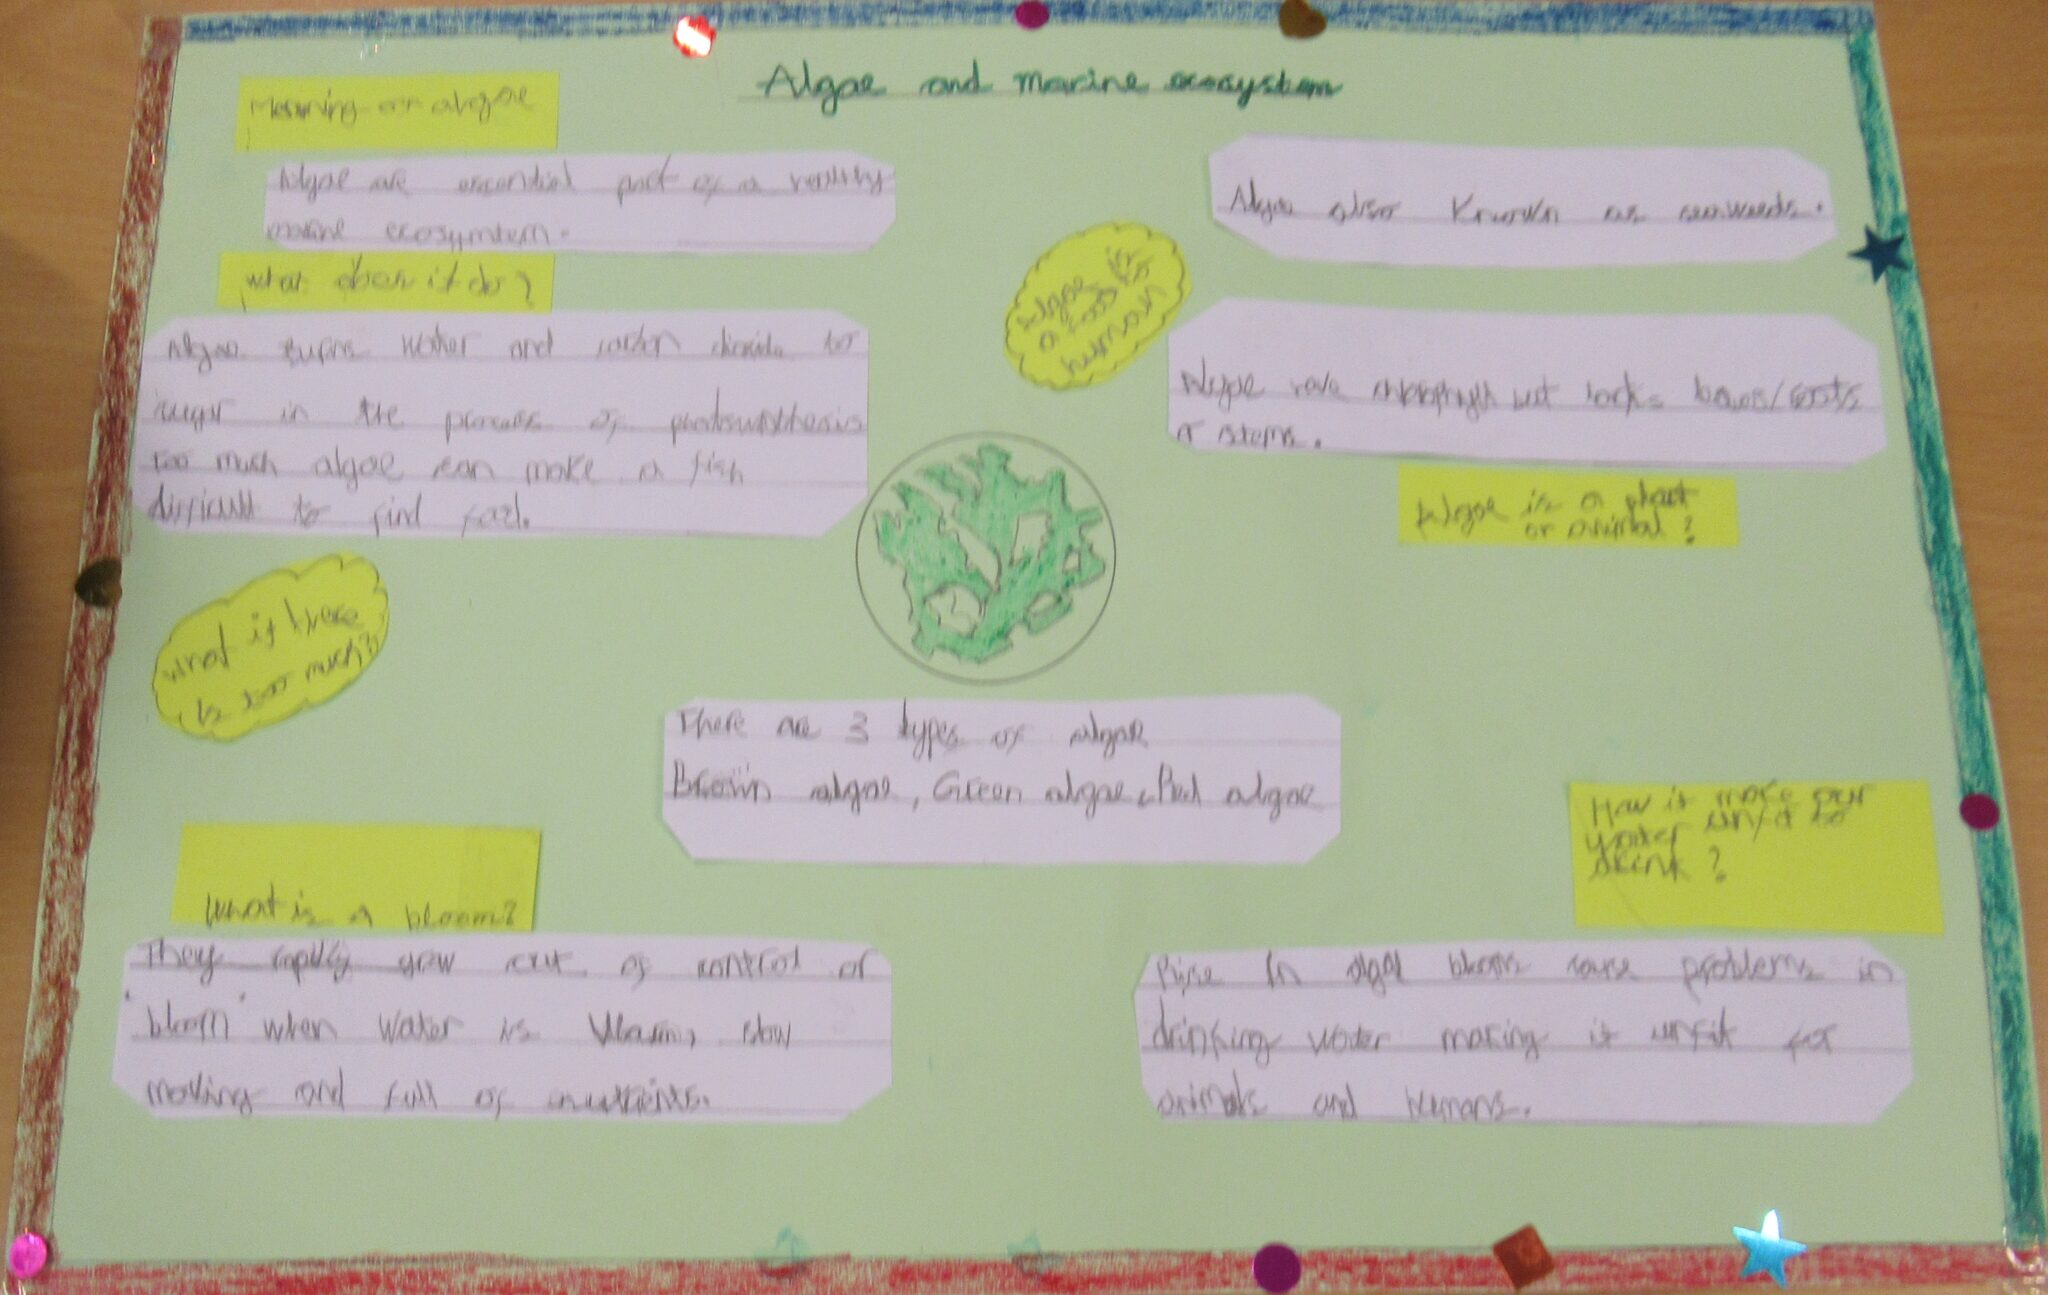 Algae and marine ecosystem
Meaning of algae
Algae are essential part of a healthy
marine ecosymtem.
what does it do?
Algae turns water and carbon dioxide to
sugar in the process of photosynthesis
too much algae can make a fish
difficult to find food.
what if there
is too much?
Algae is
a food for
human
Algae also known as seaweeds.
Algae have chlorophyll but lacks leaves/roots
or stems.
Algae is a plant
or animal?
There are 3 types of algae
Brown algae, Green algae, Red algae
What is a bloom?
They rapidly grow out of control or
'bloom' when water is warm, slow
moving and full of nutrients.
How it make our
water unfit to
drink?
Rise in algal blooms cause problems in
drinking water making it unfit for
animals and humans.